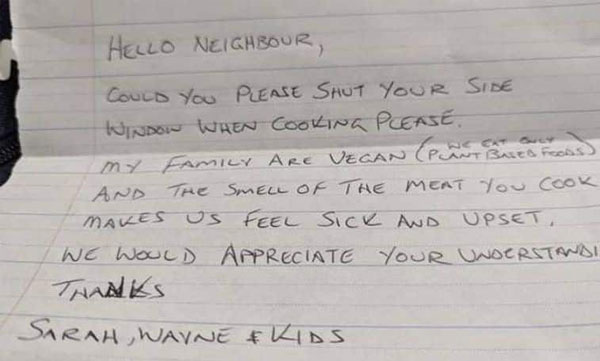 HELLO NEIGHBOUR,
COULD YOU PLEASE SHUT YOUR SIDE
WINDOW WHEN COOKING PLEASE.
MY FAMILY ARE VEGAN (WE EAT ONLY PLANT BASED FOODS)
AND THE SMELL OF THE MEAT YOU COOK
MAKES US FEEL SICK AND UPSET.
WE WOULD APPRECIATE YOUR UNDERSTANDI
THANKS
SARAH, WAYNE & KIDS